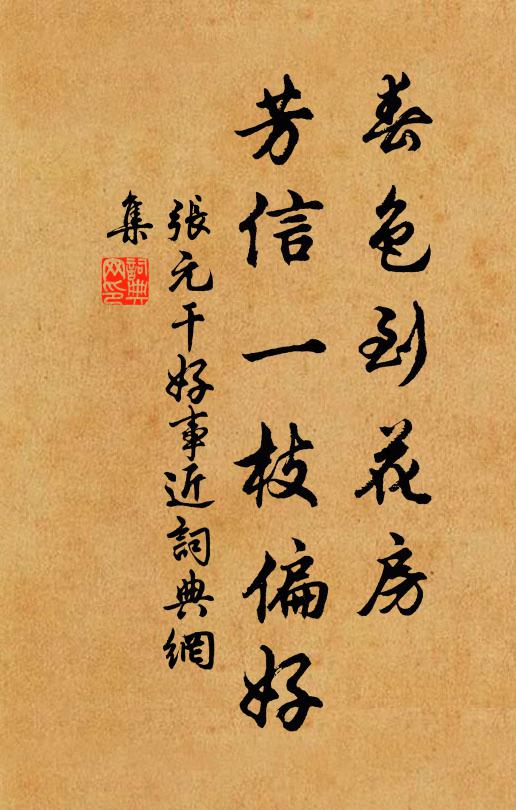 春色到花房
芳信一枝偏好
張元干好事近詞典網
集
詞典
网印